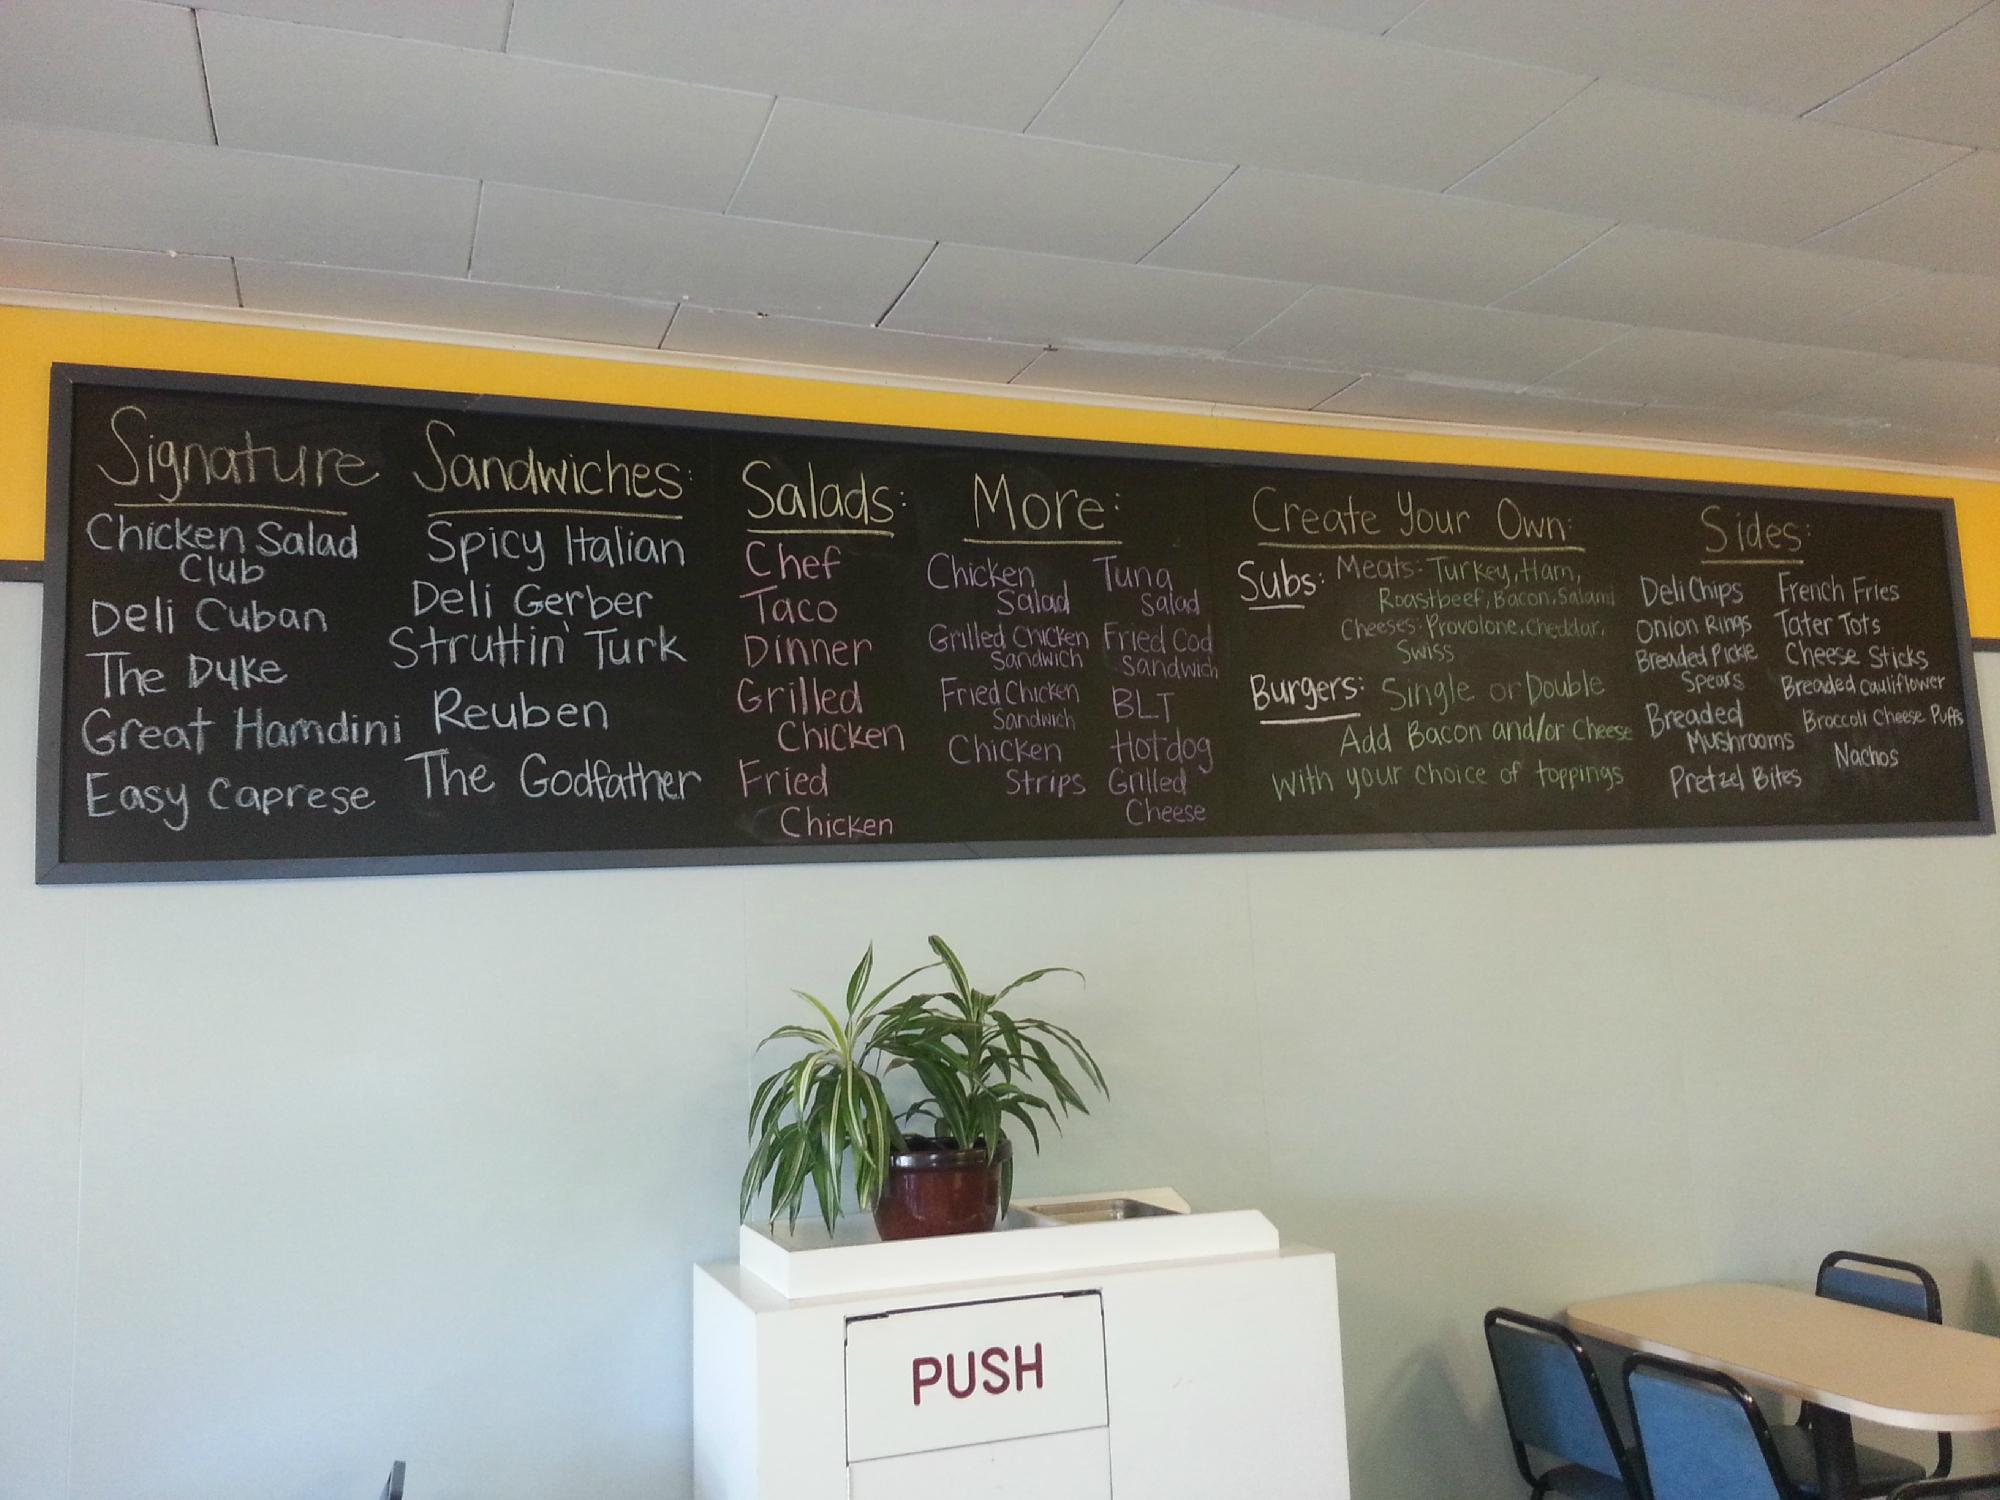 Signature Sandwiches:
Chicken Salad
Club
Deli Cuban
The Duke
Great Hamdini
Easy Caprese
Spicy Italian
Deli Gerber
Struttin' Turk
Reuben
The Godfather
Salads:
Chef
Taco
Dinner
Grilled
Chicken
Fried
Chicken
More:
Chicken
Salad
Grilled Chicken
Sandwich
Fried Chicken
Sandwich
Chicken
Strips
Tuna
Salad
Fried Cod
Sandwich
BLT
Hotdog
Grilled
Cheese
Create Your Own:
Subs: Meats: Turkey, Ham,
Roastbeef, Bacon, Salami
Cheeses: Provolone, Cheddar,
Swiss
Burgers: Single or Double
Add Bacon and/or Cheese
With your choice of toppings
Sides:
Deli Chips
Onion Rings
Breaded Pickle
Spears
Breaded
Mushrooms
Pretzel Bites
French Fries
Tater Tots
Cheese Sticks
Breaded Cauliflower
Broccoli Cheese Puffs
Nachos
PUSH